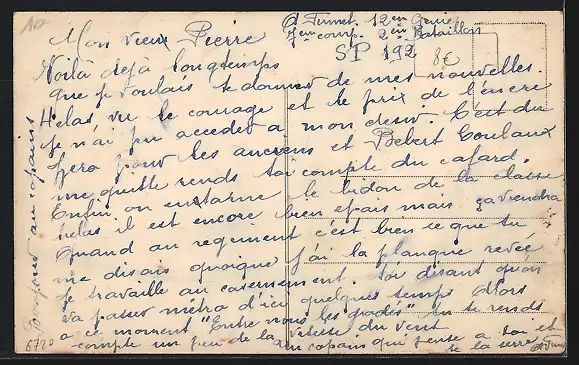 A Tumet. 12em Genie
7em comp. 2em Bataillon
SP 192
8€
Mon vieux Pierre
Voilà dejà longtemps
que je voulais te donner de mes nouvelles.
Helas vu le courage et le prix de l'encre
je n'ai pu acceder a mon desir. C'est du
zero pour les anciens et Bebert Coulaux
me quitte rends toi compte du cafard.
Enfin on entame le bidon de la classe
helas il est encore bien epais mais ça viendra
Quand au regiment c'est bien ce que tu
me disais quoique j'ai la planque revée
je travaille au casernement. toi disant qu'on
va passer métro d'ici quelques temps. Alors
a ce moment "Entre nous les grades" tu te rends
compte un peu de la vitesse du vent
un copain qui pense a toi et
te la serre
Bonjour au copains
6720